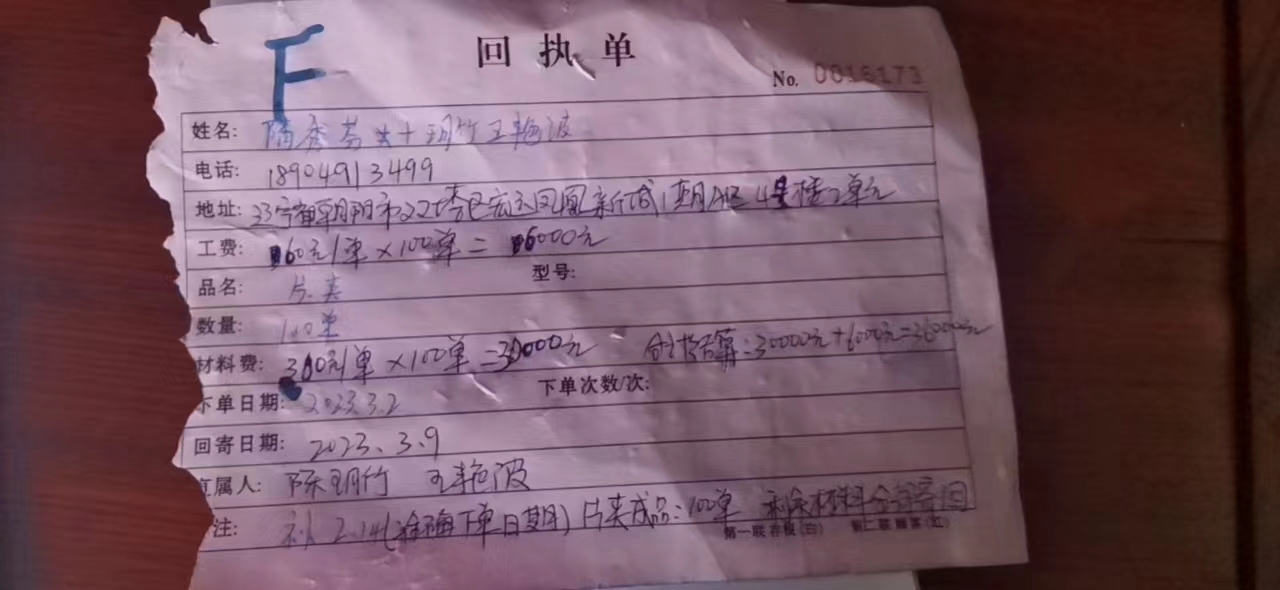 F
回执单
No. 0016173
姓名: 陈秀芬 玥竹 王艳波
电话: 18904913499
地址: 辽宁省朝阳市双塔区宏运凤凰新城1期A区4号楼2单元
工费: 60元/单×100单= 6000元
品名: 片夹 型号:
数量: 100单
材料费: 300元/单×100单=30000元 合计结算:30000元+6000元=36000元
下单日期: 2023.3.2 下单次数/次:
回寄日期: 2023.3.9
直属人: 陈玥竹 王艳波
注: 2.14(涂梅下单日期)片夹成品:100单 剩余材料全部寄回
第一联存根(白) 第二联顾客(红)